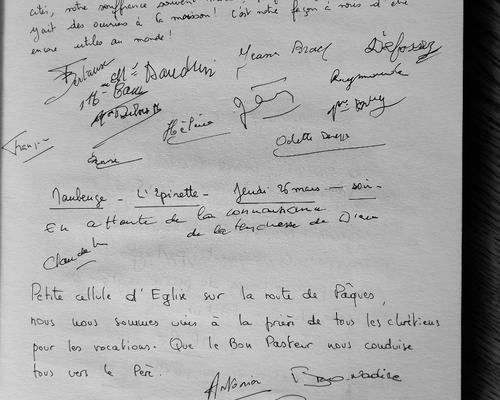 cités, notre souffrance souvent
yait des ouvriers à la moisson! c'est notre façon à nous d'être
encore utiles au monde!
Bertrand Mr Daudin Jeanne Brael Défossez
Raymonde
Hélène
Odette
Franç
Maubeuge - L'Epinette - Jeudi 26 mars - soir -
En attente de la connaissance
de la tendresse de Dieu
Claude
Petite cellule d'Eglise sur la route de Pâques,
nous nous sommes unis à la prière de tous les chrétiens
pour les vocations. Que le Bon Pasteur nous conduise
tous vers le Père.
Antonia